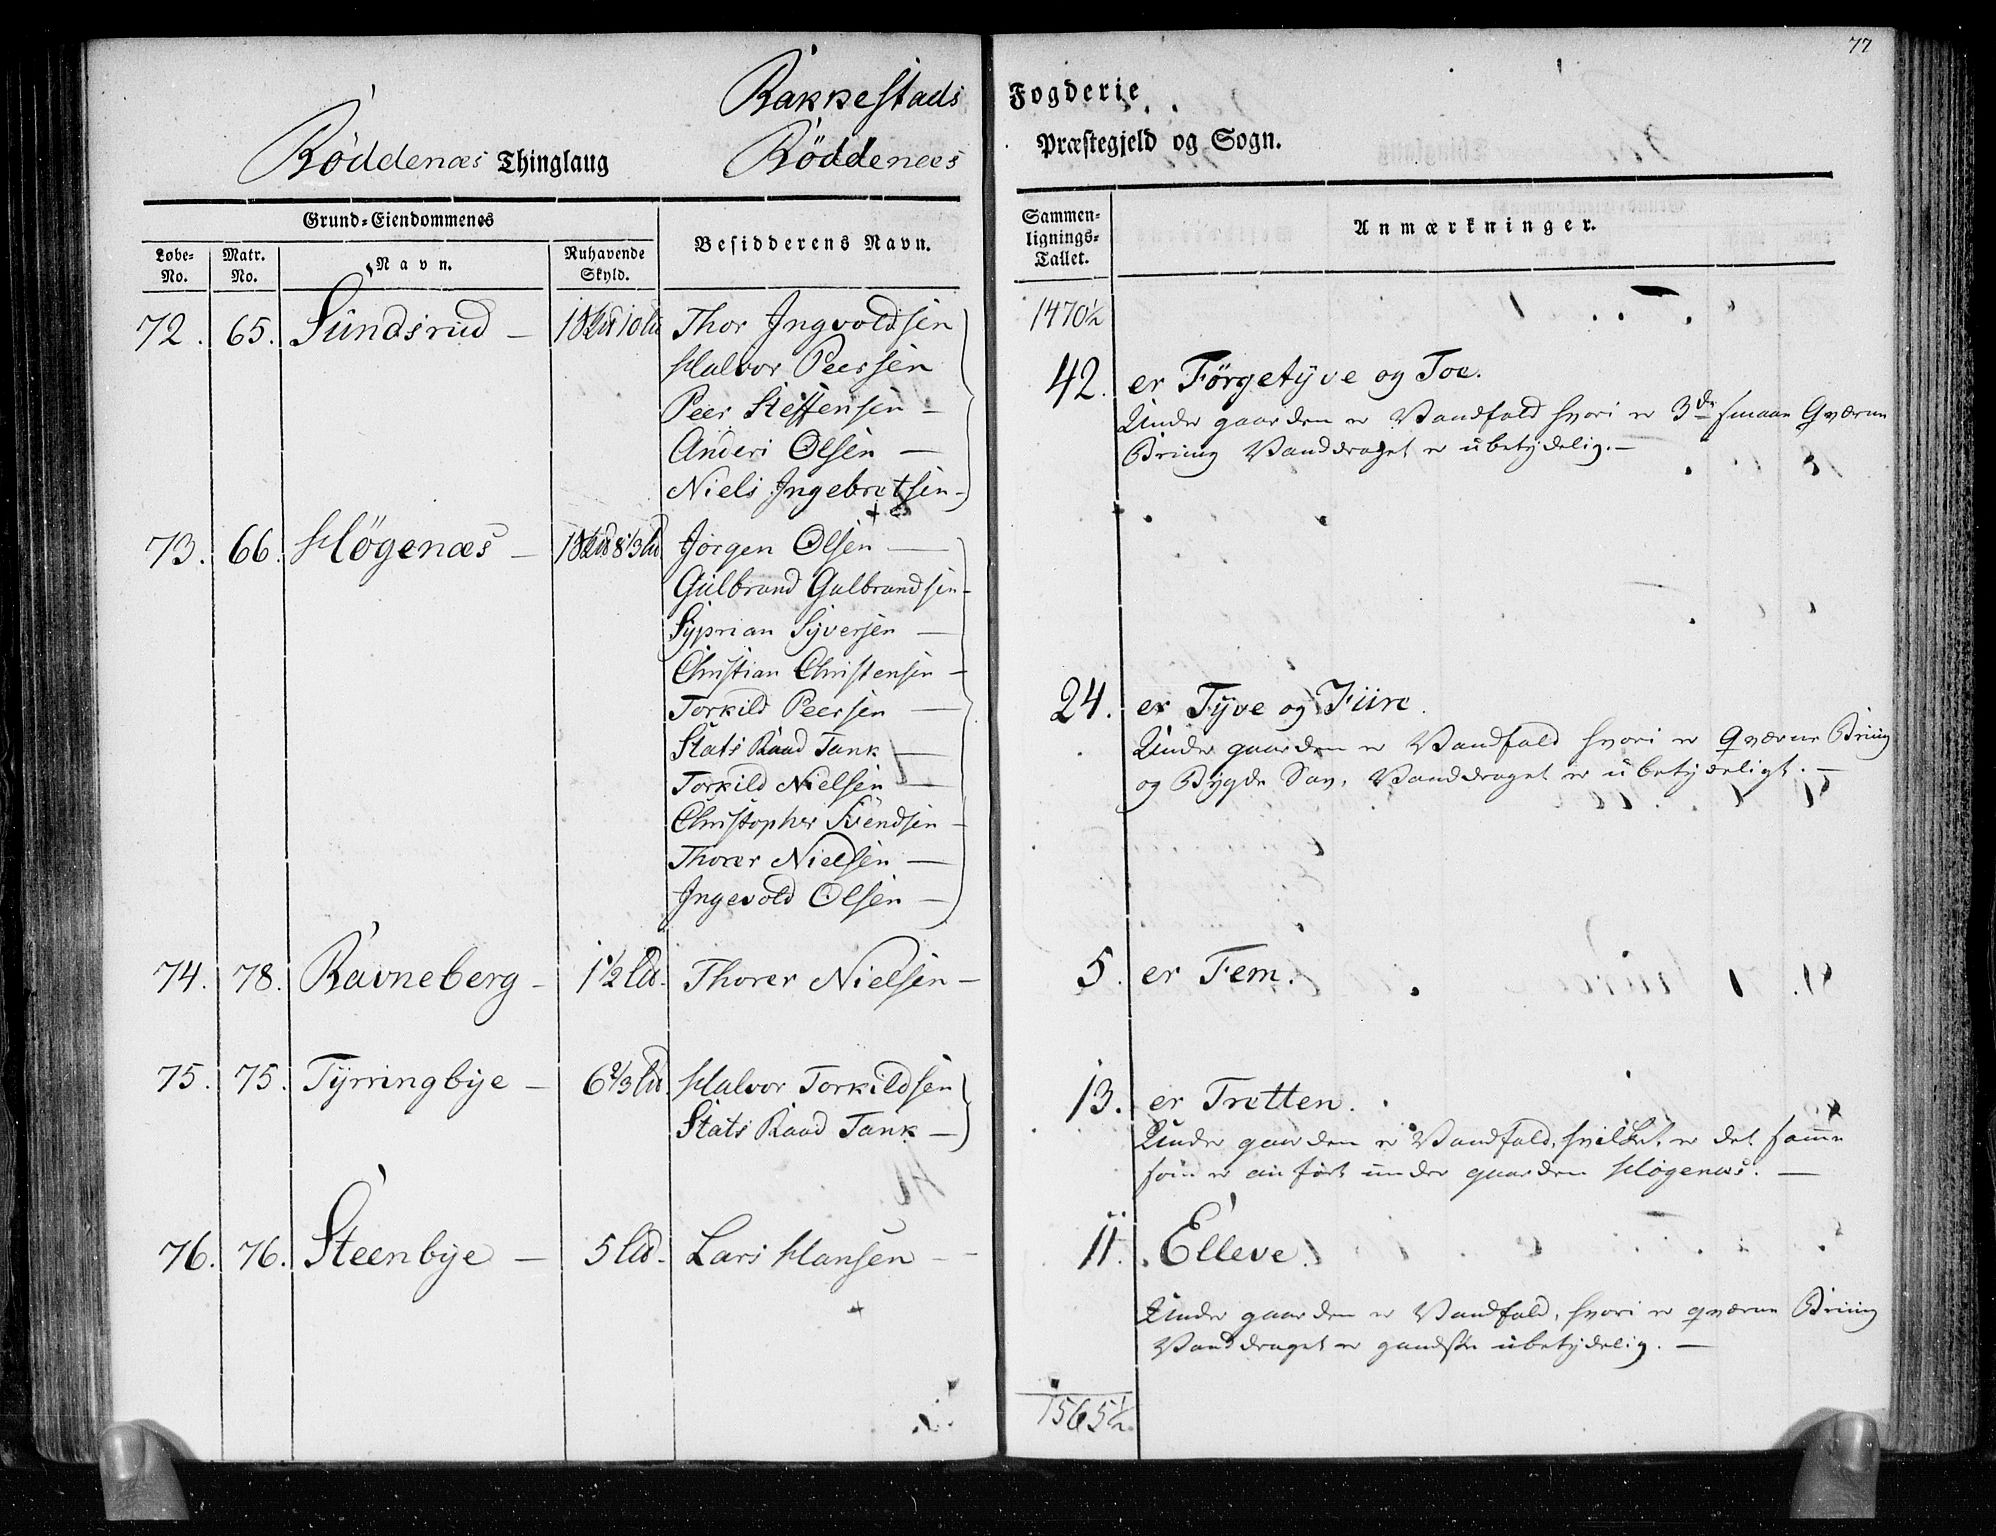 77
Rakkestads Fogderie
Røddenæs Thinglaug Røddenæs Præstegjeld og Sogn.
Grund-Eiendommenes
Besidderens Navn.
Sammen-
lignings-
Tallet.
Anmærkninger.
Løbe-
No.
Matr.
No.
Navn.
Nuhavende
Skyld.
1470½
72. 65. Sundsrud — 10 Ld Thor Ingvoldsen
Halvor Peersen
Peer Steffensen —
Anders Olsen —
Niels Ingebretsen —
42. er Førgetyve og Toe.
Under gaarden er Vandfald hvori er 3de smaae Qværne
Brüug Vanddraget er ubetydelig. —
73. 66. Høgenæs — 8⅓ Ld Jørgen Olsen —
Gulbrand Gulbrandsen —
Syprian Syversen —
Christian Christensen —
Torkild Peersen —
Stats Raad Tank —
Torkild Nielsen —
Christopher Svendsen —
Thorer Nielsen —
Ingevold Olsen —
24. er Tyve og Fiire.
Under gaarden er Vandfald hvori er Qværne Brüug
og Bygde Sav, Vanddraget er ubetydeligt. —
74. 78. Ravneberg — 1½ Ld. Thorer Nielsen —
5. er Fem.
75. 75. Tyrringbye — 6⅔ Ld. Halvor Torkildsen
Stats Raad Tank —
13. er Tretten.
Under gaarden er Vandfald, hvilket er det samme
som er anført under gaarden Høgenæs. —
76. 76. Steenbye — 5 Ld. Lars Hansen —
11. Elleve.
Under gaarden er Vandfald, hvori er qværne Brüug
Vanddraget er gandske ubetydelig. —
1565½.